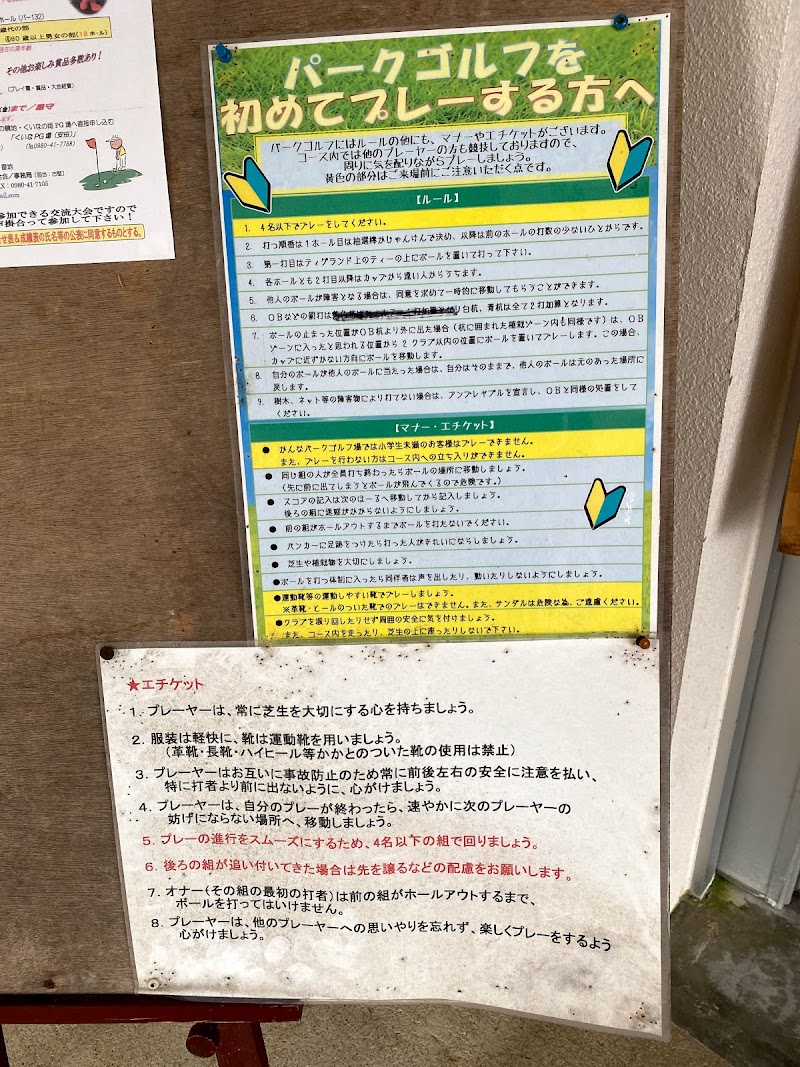 ホール(パー132)
歳代の部
⑥80歳以上男女の部(18ホール)
その他お楽しみ賞品多数あり!
(プレイ費・賞品・大会経費)
まで/厳守
「くいなPG場(安田)」
(℡0980-41-7788)
参加できる交流大会ですので
声掛合って参加して下さい!
せ表&成績表の氏名等の公表に同意するものとする。
パークゴルフを
初めてプレーする方へ
パークゴルフにはルールの他にも、マナーやエチケットがございます。
コース内では他のプレーヤーの方も競技しておりますので、
周りに気を配りながらプレーしましょう。
黄色の部分はご来場前にご注意いただく点です。
【ルール】
1. 4名以下でプレーをしてください。
2. 打つ順番は1ホール目は抽選棒かじゃんけんで決め、以降は前のホールの打数の少ないひとからです。
3. 第一打目はティグランド上のティーの上にボールを置いて打って下さい。
4. 各ホールとも2打目以降はカップから遠い人からうちます。
5. 他人のボールが障害となる場合は、同意を求めて一時的に移動してもらうことができます。
6. OBなどの罰打は 白杭、青杭は全て2打加算となります。
7. ボールの止まった位置がOB杭より外に出た場合(杭に囲まれた植栽ゾーン内も同様です)は、OB
ゾーンに入ったと思われる位置から2クラブ以内の位置にボールを置いてプレーします。この場合、
カップに近ずかない方向にボールを移動します。
8. 自分のボールが他人のボールに当たった場合は、自分はそのままで、他人のボールは元のあった場所に
戻します。
9. 樹木、ネット等の障害物により打てない場合は、アンプレヤブルを宣言し、OBと同様の処置をして
ください。
【マナー・エチケット】
● かんなパークゴルフ場では小学生未満のお客様はプレーできません。
また、プレーを行わない方はコース内への立ち入りができません。
● 同じ組の人が全員打ち終わったらボールの場所に移動しましょう。
(先に前に出てしまうとボールが飛んでくるので危険です。)
● スコアの記入は次のほーるへ移動してから記入しましょう。
後ろの組に迷惑がかからないようにしましょう。
● 前の組がホールアウトするまでボールを打たないでください。
● バンカーに足跡をつけたら打った人がきれいにならしましょう。
● 芝生や植栽物を大切にしましょう。
●ボールを打つ体制に入ったら同伴者は声を出したり、動いたりしないようにしましょう。
●運動靴等の運動しやすい靴でプレーしましょう。
※革靴・ヒールのついた靴でのプレーはできません。また、サンダルは危険な為、ご遠慮ください。
●クラブを振り回したりせず周囲の安全に気を付けましょう。
また、コース内を走ったり、芝生の上に座ったりしないで下さい。
★エチケット
1. プレーヤーは、常に芝生を大切にする心を持ちましょう。
2. 服装は軽快に、靴は運動靴を用いましょう。
(革靴・長靴・ハイヒール等かかとのついた靴の使用は禁止)
3. プレーヤーはお互いに事故防止のため常に前後左右の安全に注意を払い、
特に打者より前に出ないように、心がけましょう。
4. プレーヤーは、自分のプレーが終わったら、速やかに次のプレーヤーの
妨げにならない場所へ、移動しましょう。
5. プレーの進行をスムーズにするため、4名以下の組で回りましょう。
6. 後ろの組が追い付いてきた場合は先を譲るなどの配慮をお願いします。
7. オナー(その組の最初の打者)は前の組がホールアウトするまで、
ボールを打ってはいけません。
8. プレーヤーは、他のプレーヤーへの思いやりを忘れず、楽しくプレーをするよう
心がけましょう。